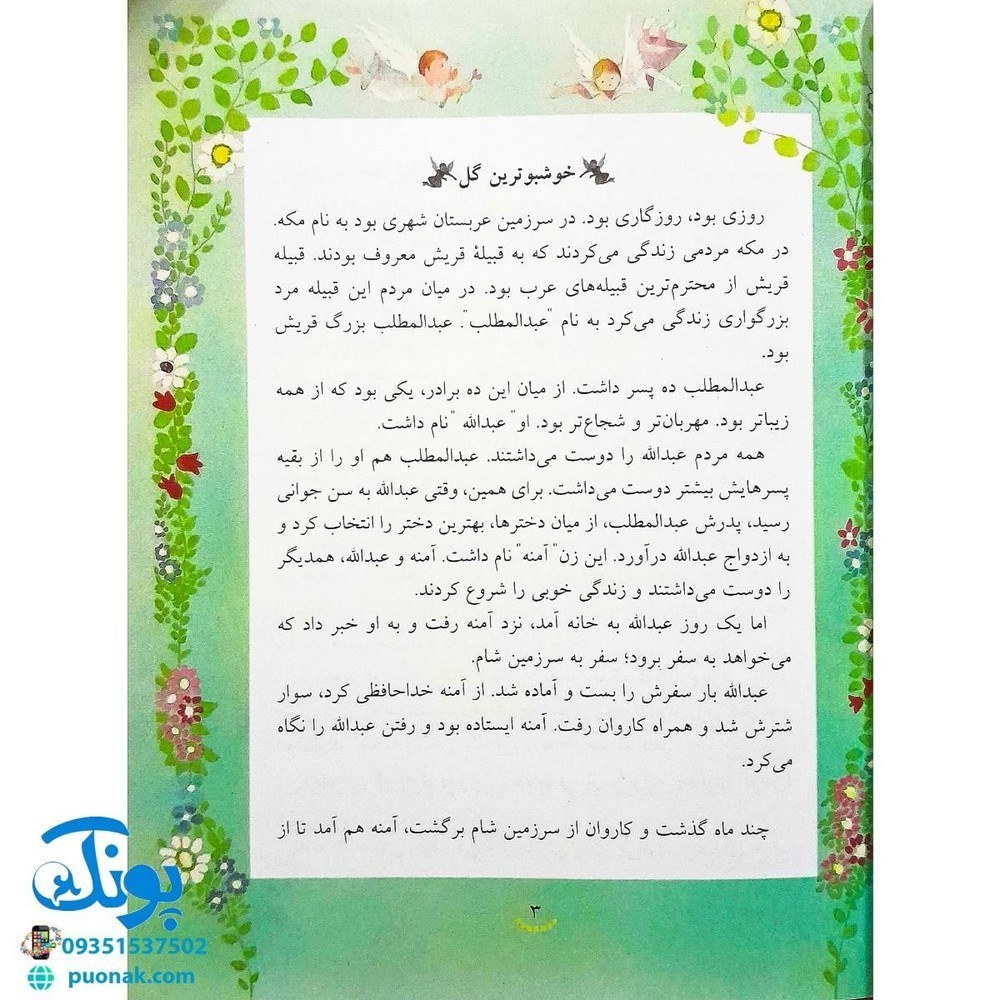 خوشبوترین گل
روزی بود، روزگاری بود. در سرزمین عربستان شهری بود به نام مکه.
در مکه مردمی زندگی می‌کردند که به قبیلهٔ قریش معروف بودند. قبیله
قریش از محترم‌ترین قبیله‌های عرب بود. در میان مردم این قبیله مرد
بزرگواری زندگی می‌کرد به نام "عبدالمطلب". عبدالمطلب بزرگ قریش
بود.
عبدالمطلب ده پسر داشت. از میان این ده برادر، یکی بود که از همه
زیباتر بود. مهربان‌تر و شجاع‌تر بود. او" عبدالله "نام داشت.
همه مردم عبدالله را دوست می‌داشتند. عبدالمطلب هم او را از بقیه
پسرهایش بیشتر دوست می‌داشت. برای همین، وقتی عبدالله به سن جوانی
رسید، پدرش عبدالمطلب، از میان دخترها، بهترین دختر را انتخاب کرد و
به ازدواج عبدالله درآورد. این زن" آمنه" نام داشت. آمنه و عبدالله، همدیگر
را دوست می‌داشتند و زندگی خوبی را شروع کردند.
اما یک روز عبدالله به خانه آمد، نزد آمنه رفت و به او خبر داد که
می‌خواهد به سفر برود؛ سفر به سرزمین شام.
عبدالله بار سفرش را بست و آماده شد. از آمنه خداحافظی کرد، سوار
شترش شد و همراه کاروان رفت. آمنه ایستاده بود و رفتن عبدالله را نگاه
می‌کرد.
چند ماه گذشت و کاروان از سرزمین شام برگشت، آمنه هم آمد تا از
۳
پونک
09351537502
puonak.com